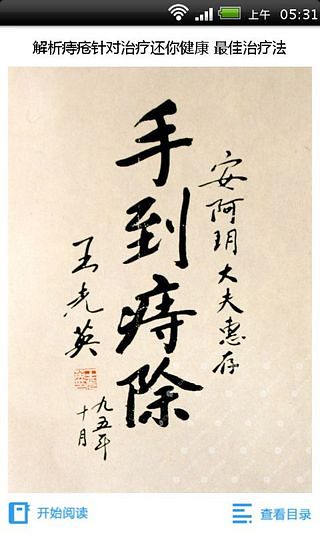 上午 05:31
解析痔疮针对治疗还你健康 最佳治疗法
安阿玥大夫惠存
手到痔除
王光英
九五年
十月
开始阅读
查看目录